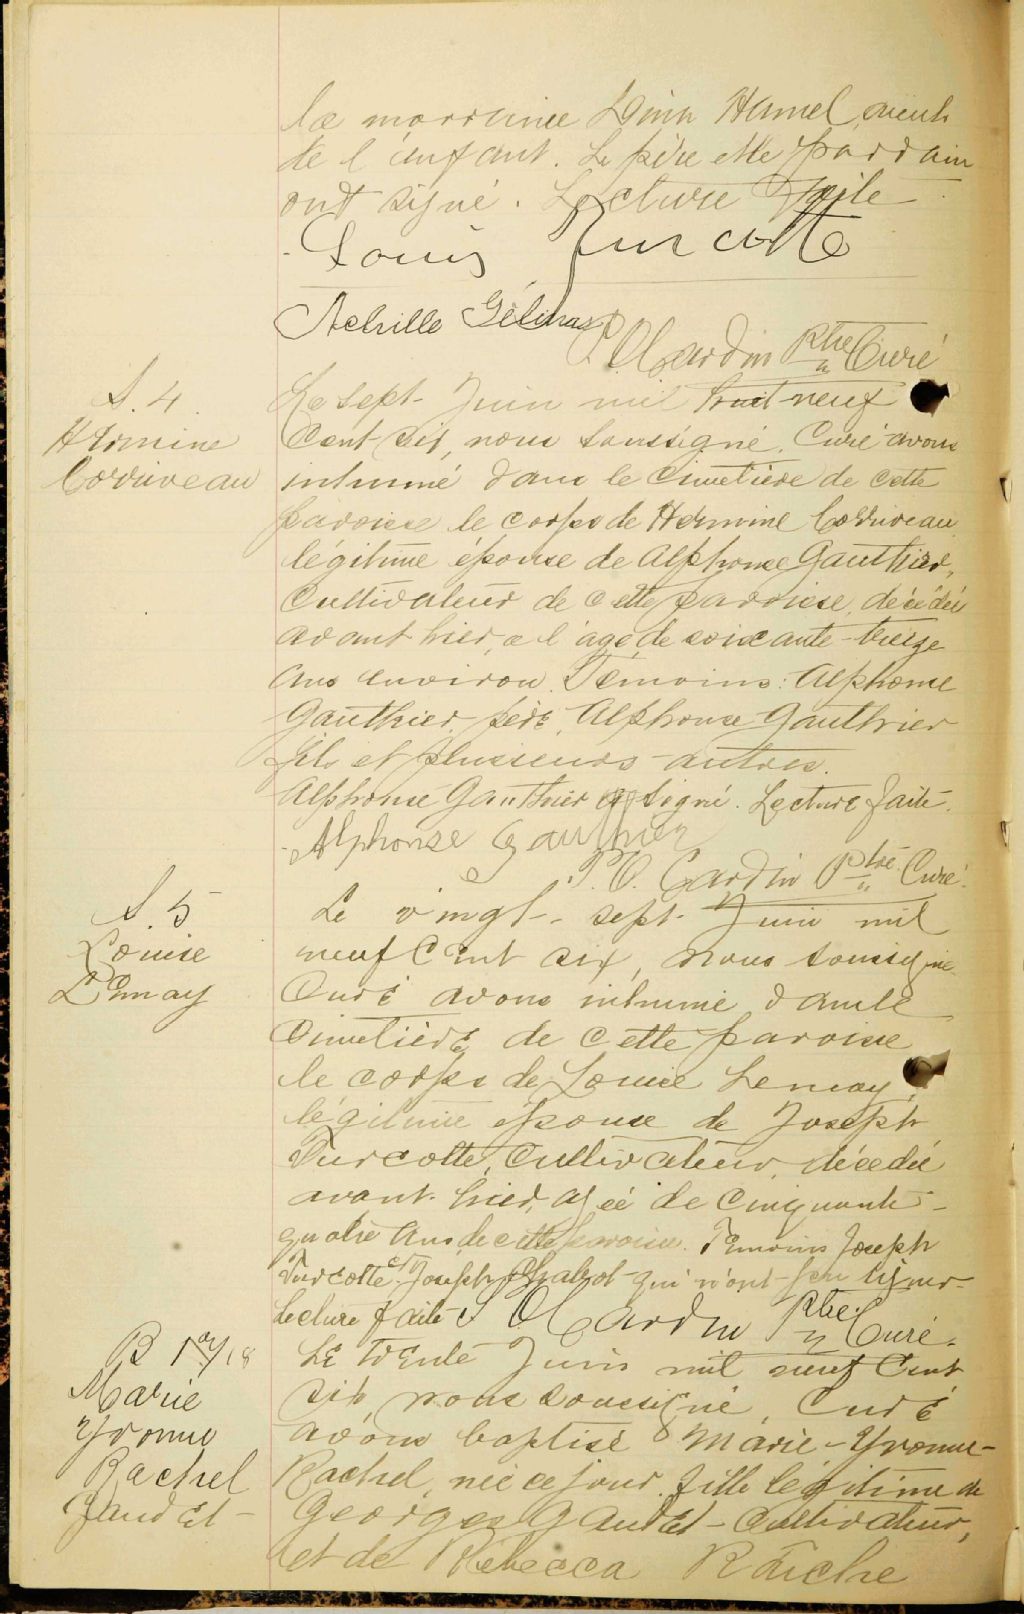 la marraine Hamel
de l'enfant. Le père et le parrain
ont signé. Lecture faite
Louis Turcotte
Achille Gélinas
P. O. Cardin Ptre Curé
S. 4
Hermine
Corriveau
Le sept Juin mil huit neuf
Cent six, nous soussigné, Curé avons
inhumé dans le Cimetière de cette
paroisse le corps de Hermine Corriveau
légitime épouse de Alphonse Gauthier,
Cultivateur de cette paroisse, décédée
avant hier, a l'age de soixante-treize
ans environ. Témoins: Alphonse
Gauthier père, Alphonse Gauthier
fils et plusieurs autres.
Alphonse Gauthier a signé. Lecture faite.
Alphonse Gauthier
P. O. Cardin Ptre Curé.
S. 5
Louise
Lemay
Le vingt-sept Juin mil
neuf Cent six, nous soussigné
Curé avons inhumé dans le
Cimetière de cette paroisse
le corps de Louise Lemay,
légitime épouse de Joseph
Turcotte, Cultivateur, décédée
avant-hier, agée de Cinquante-
quatre ans de cette paroisse. Témoins Joseph
Turcotte et Joseph Chabot qui n'ont pu signer.
Lecture faite P. O. Cardin Ptre Curé.
B 18
Marie
Yvonne
Rachel
Gaudet
Le trente Juin mil neuf Cent
six, nous soussigné, Curé
avons baptisé Marie-Yvonne-
Rachel, née ce jour, fille légitime de
Georges Gaudet Cultivateur,
et de Rébecca Raiche